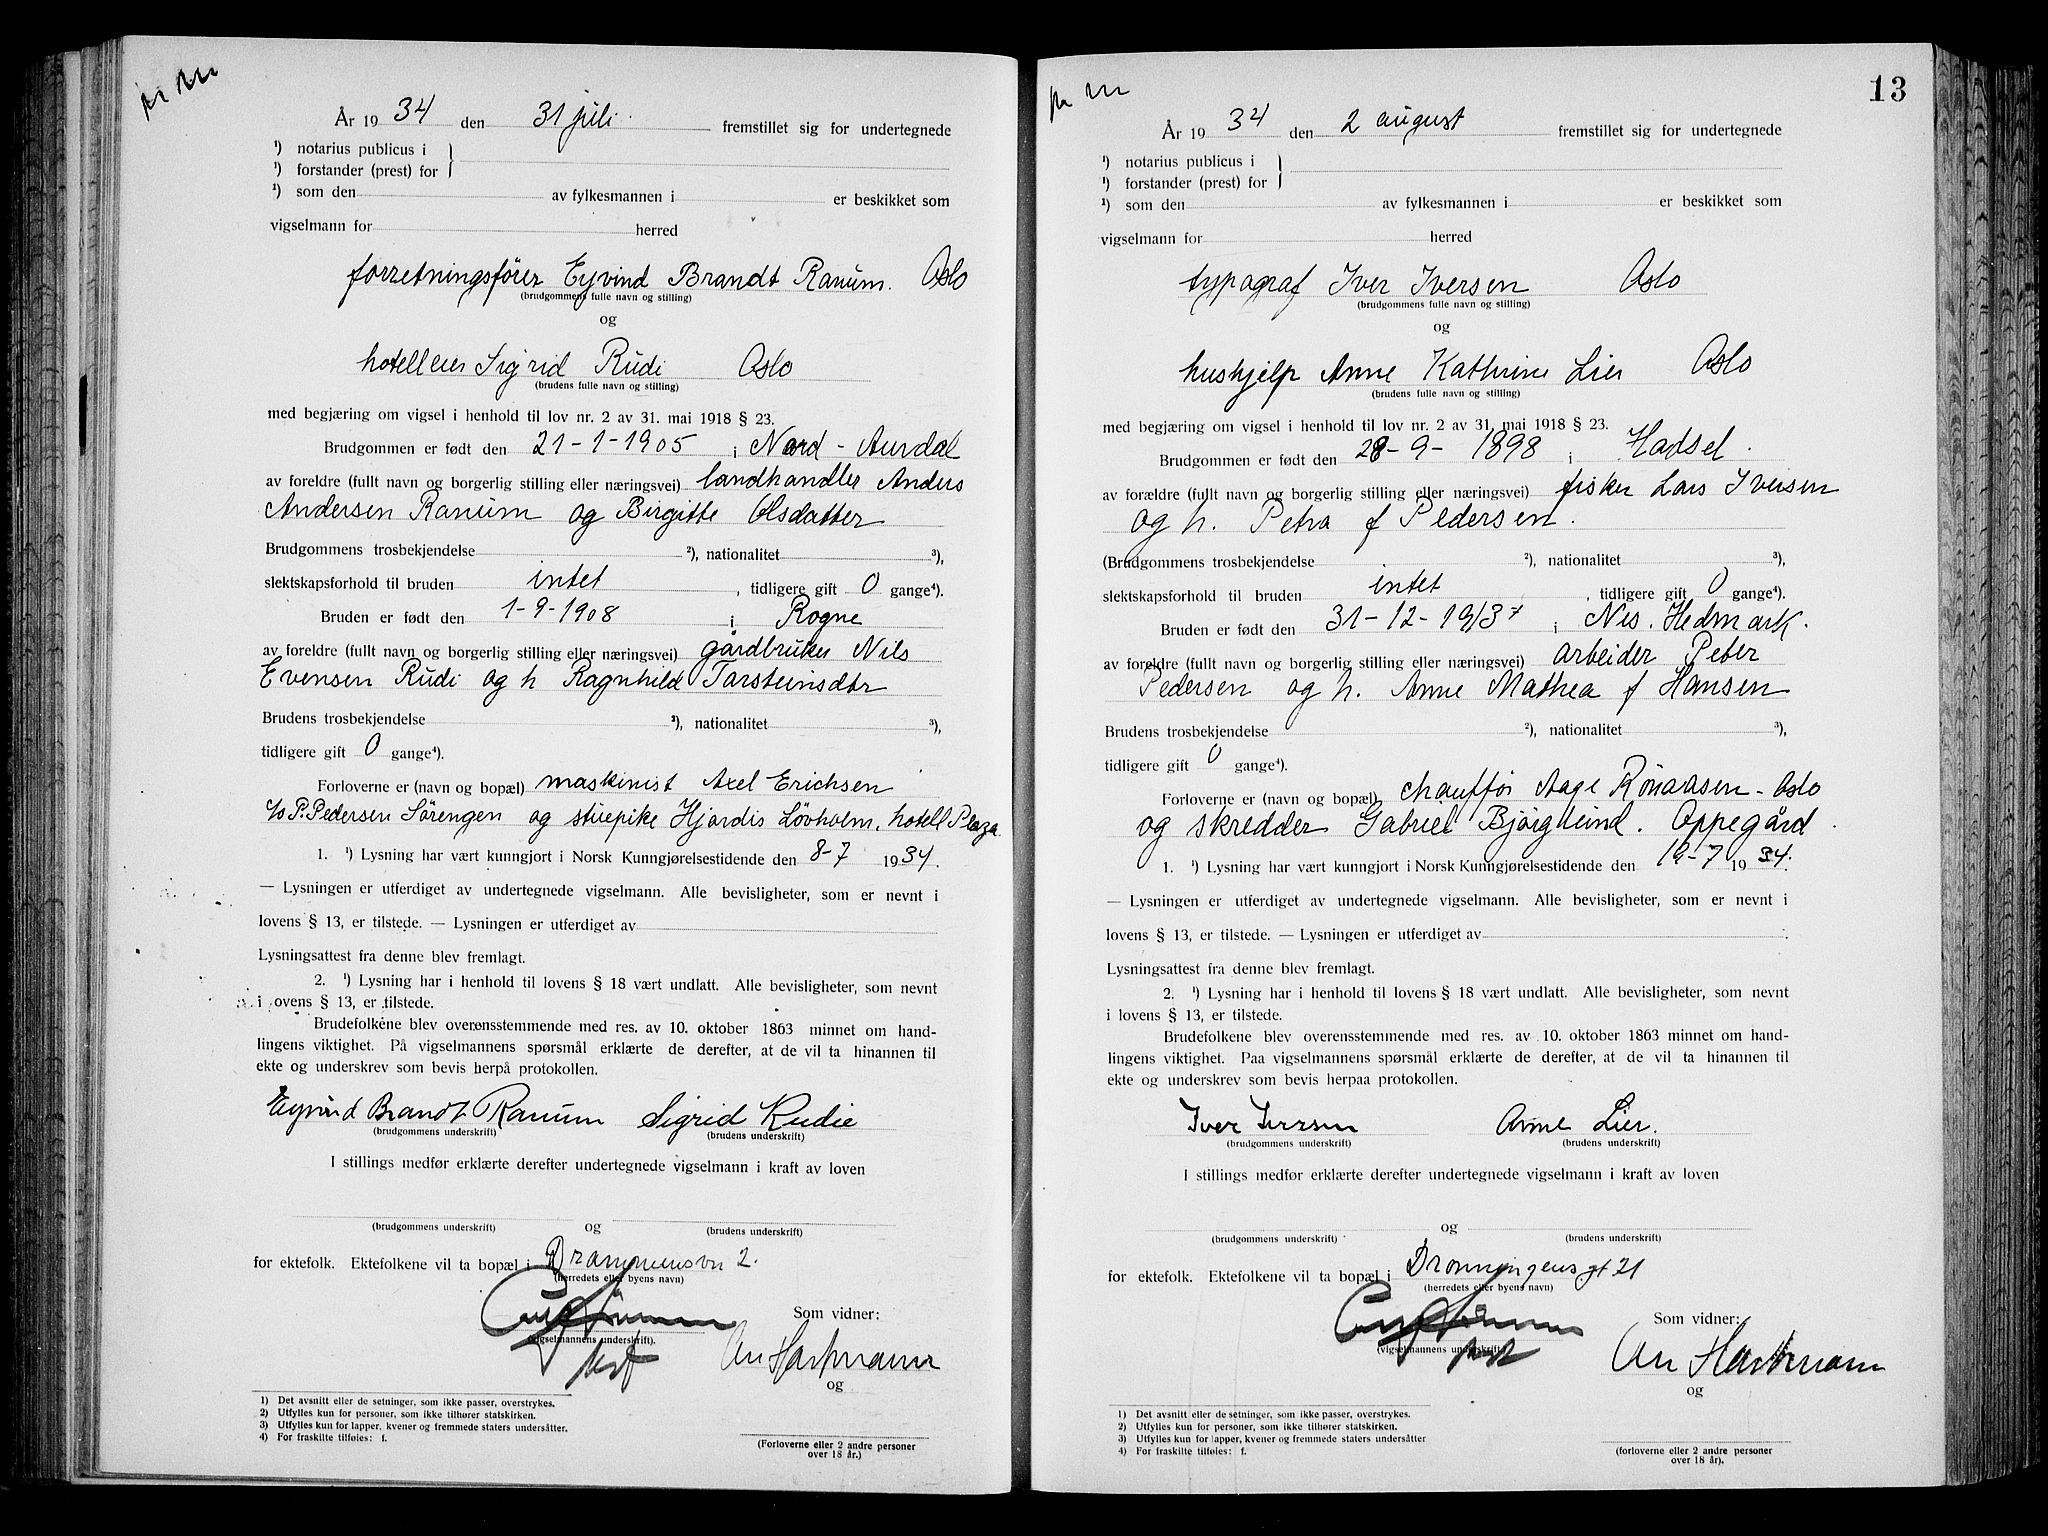 År 1934 den 31 juli. fremstillet sig for undertegnede
¹) notarius publicus i
¹) forstander (prest) for
¹) som den av fylkesmannen i er beskikket som
vigselmann for herred
forretningsfører Eyvind Brandt Ranum. Oslo
(brudgommens fulle navn og stilling)
og
hotelleier Sigrid Rudi Oslo
(brudens fulle navn og stilling)
med begjæring om vigsel i henhold til lov nr. 2 av 31. mai 1918 § 23.
Brudgommen er født den 21-1-1905 i Nord-Aurdal
av foreldre (fullt navn og borgerlig stilling eller næringsvei) landhandler Anders
Andersen Ranum og Birgitte Olsdatter
Brudgommens trosbekjendelse ²), nationalitet ³),
slektskapsforhold til bruden intet, tidligere gift 0 gange⁴).
Bruden er født den 1-9-1908 i Rogne
av foreldre (fullt navn og borgerlig stilling eller næringsvei) gårdbruker Nils
Evensen Rudi og h Ragnhild Torsteinsdtr
Brudens trosbekjendelse ²), nationalitet ³),
tidligere gift 0 gange⁴).
Forloverne er (navn og bopæl) maskinist Axel Erichsen
P. Pedersen Sörengen og stuepike Hjordis Løvholm, hotell Plaza
1. ¹) Lysning har vært kunngjort i Norsk Kunngjørelsestidende den 8-7 1934.
— Lysningen er utferdiget av undertegnede vigselmann. Alle bevisligheter, som er nevnt i
lovens § 13, er tilstede. — Lysningen er utferdiget av
Lysningsattest fra denne blev fremlagt.
2. ¹) Lysning har i henhold til lovens § 18 vært undlatt. Alle bevisligheter, som nevnt
i lovens § 13, er tilstede.
Brudefolkene blev overensstemmende med res. av 10. oktober 1863 minnet om hand-
lingens viktighet. På vigselmannens spørsmål erklærte de derefter, at de vil ta hinannen til
ekte og underskrev som bevis herpå protokollen.
Eyvind Brandt Ranum Sigrid Rudie
(brudgommens underskrift) (brudens underskrift)
I stillings medfør erklærte derefter undertegnede vigselmann i kraft av loven
og
(brudgommens underskrift) (brudens underskrift)
for ektefolk. Ektefolkene vil ta bopæl i Drammensvn 2.
(herredets eller byens navn)
Som vidner:
(vigselmannens underskrift).
Hartmann
og
1) Det avsnitt eller de setninger, som ikke passer, overstrykes.
2) Utfylles kun for personer, som ikke tilhører statskirken.
3) Utfylles kun for lapper, kvener og fremmede staters undersåtter.
4) For fraskilte tilføies: f.
(Forloverne eller 2 andre personer
over 18 år.)
13
År 1934 den 2 august fremstillet sig for undertegnede
¹) notarius publicus i
¹) forstander (prest) for
¹) som den av fylkesmannen i er beskikket som
vigselmann for herred
typograf Iver Iversen Oslo
(brudgommens fulle navn og stilling)
og
hushjelp Anne Kathrine Lier Oslo
(brudens fulle navn og stilling)
med begjæring om vigsel i henhold til lov nr. 2 av 31. mai 1918 § 23.
Brudgommen er født den 28-9-1898 i Hadsel.
av forældre (fullt navn og borgerlig stilling eller næringsvei) fisker Lars Iversen
og h. Petra f Pedersen.
(Brudgommens trosbekjendelse ²), nationalitet ³),
slektskapsforhold til bruden intet, tidligere gift 0 gange⁴).
Bruden er født den 31-12-1913 i Nes. Hedmark.
av foreldre (fullt navn og borgerlig stilling eller næringsvei) arbeider Peter
Pedersen og h. Anne Mathea f Hansen
Brudens trosbekjendelse ²), nationalitet ³),
tidligere gift 0 gange⁴).
Forloverne er (navn og bopæl) chauffør Aage Rönaasen - Oslo
og skredder Gabriel Bjørglund. Oppegård.
1. ¹) Lysning har vært kunngjort i Norsk Kunngjørelsestidende den 19-7 1934.
— Lysningen er utferdiget av undertegnede vigselmann. Alle bevisligheter, som er nevnt i
lovens § 13, er tilstede. — Lysningen er utferdiget av
Lysningsattest fra denne blev fremlagt.
2. ¹) Lysning har i henhold til lovens § 18 vært undlatt. Alle bevisligheter, som nevnt
i lovens § 13, er tilstede.
Brudefolkene blev overensstemmende med res. av 10. oktober 1863 minnet om hand-
lingens viktighet. Paa vigselmannens spørsmål erklærte de derefter, at de vil ta hinannen til
ekte og underskrev som bevis herpaa protokollen.
Iver Iversen Anne Lier.
(brudgommens underskrift) (brudens underskrift)
I stillings medfør erklærte derefter undertegnede vigselmann i kraft av loven
og
(brudgommens underskrift) (brudens underskrift)
for ektefolk. Ektefolkene vil ta bopæl i Dronningensgt 21
(herredets eller byens navn)
Som vidner:
(vigselmannens underskrift)
Hartmann
og
1) Det avsnitt eller de setninger, som ikke passer, overstrykes.
2) Utfylles kun for personer, som ikke tilhører statskirken.
3) Utfylles kun for lapper, kvener og fremmede staters undersåtter
4) For fraskilte tilføies: f.
(forloverne eller 2 andre personer
over 18 år).